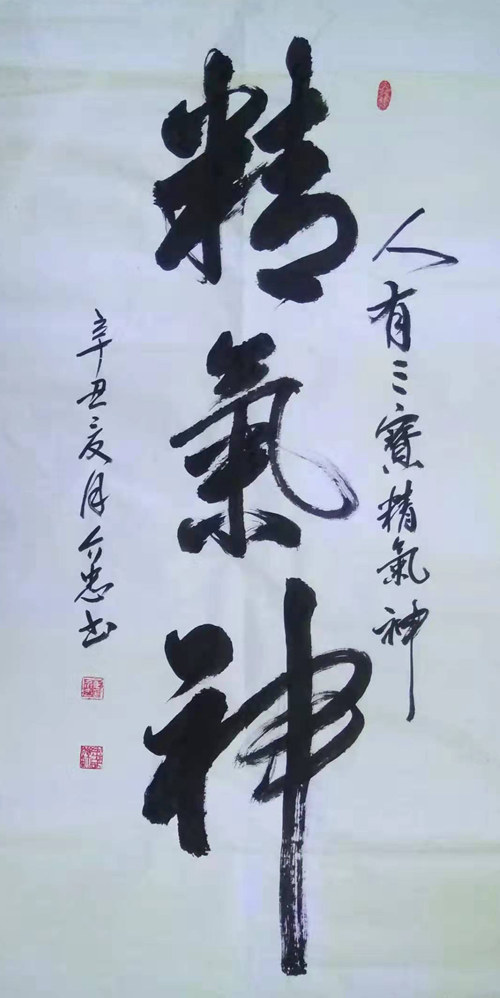 人有三寶精氣神
精氣神
辛丑月忠书